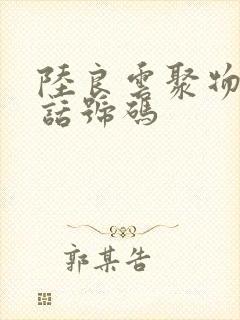 陸良雲聚物
話號碼
郭某告